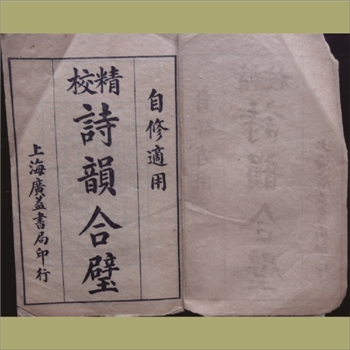 自修適用
精校
詩韻合璧
上海廣益書局印行